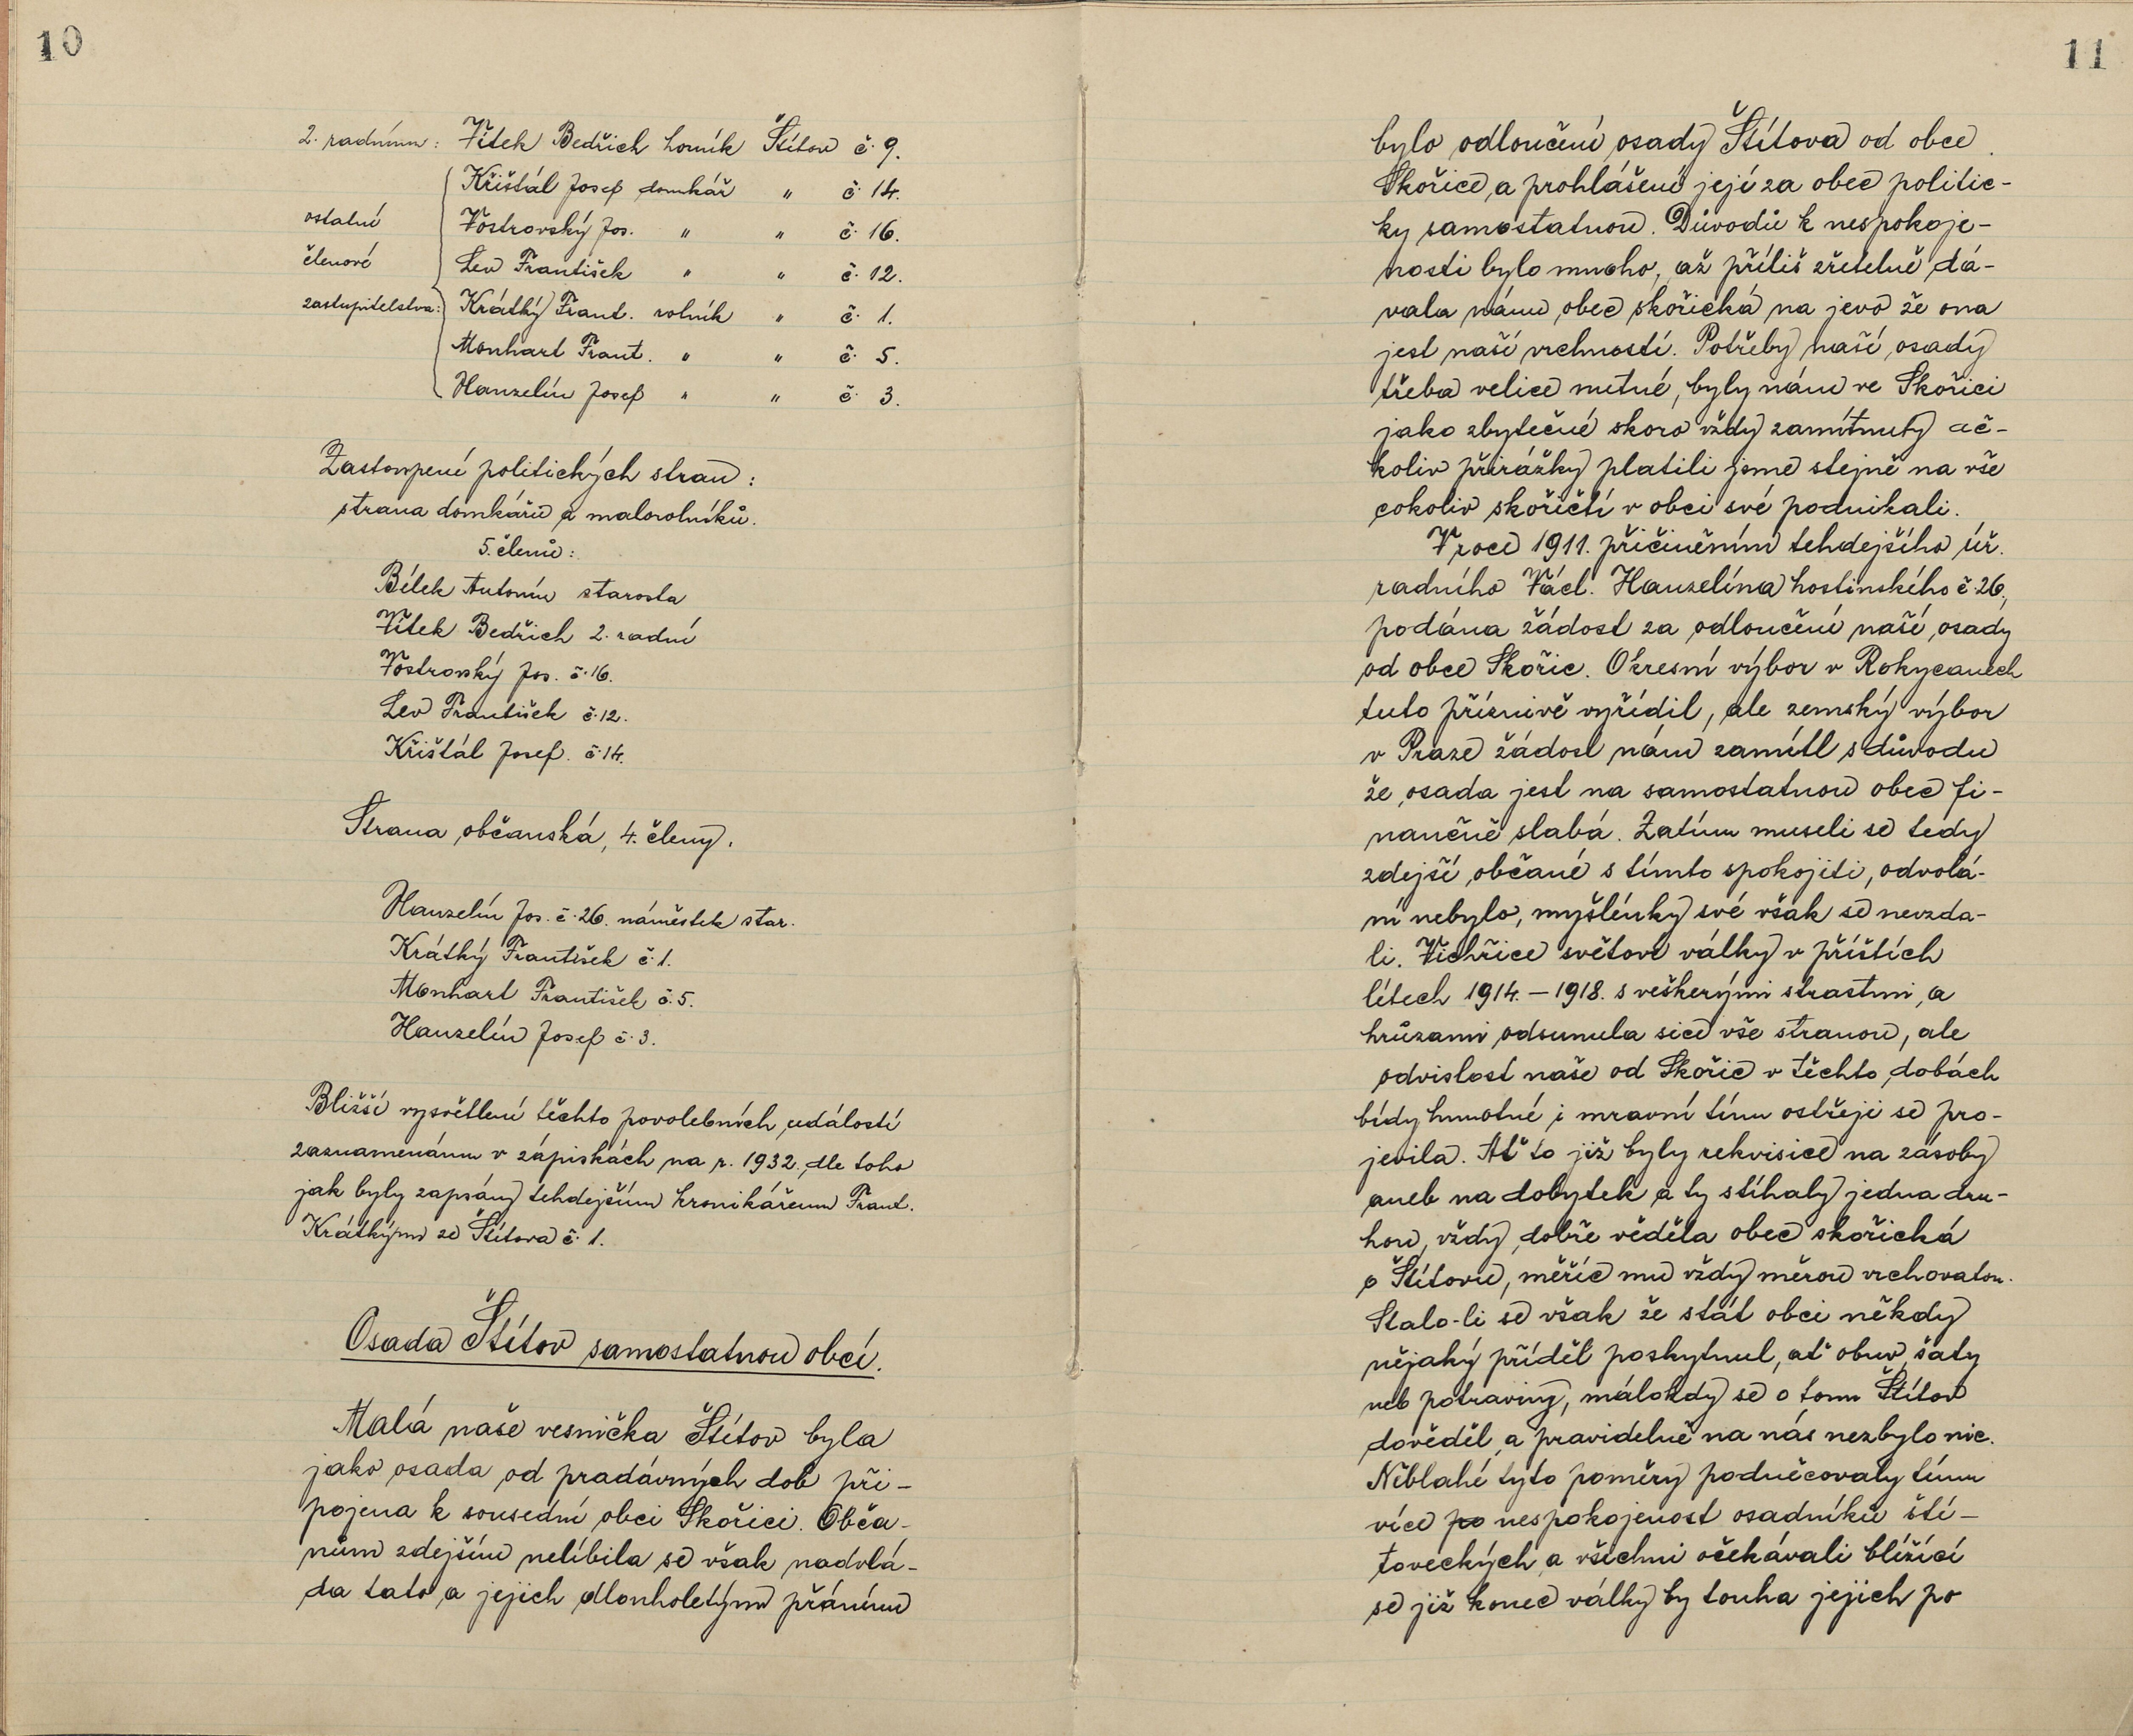 10
2. radním: Vítek Bedřich horník Štítov č. 9.
Křištál Josef domkář " č. 14.
ostatní Vostrovský Jos. " " č. 16.
členové Lev František " " č. 12.
zastupitelstva: Krátký Frant. rolník " č. 1.
Monhart Frant. " " č. 5.
Hanzelín Josef " " č. 3.
Zastoupení politických stran:
strana domkářů a malorolníků.
5. členů:
Bílek Antonín starosta
Vítek Bedřich 2. radní
Vostrovský Jos. č. 16.
Lev František č. 12.
Křištál Josef. č. 14.
Strana občanská, 4. členy.
Hanzelín Jos. č. 26. náměstek star.
Krátký František č. 1.
Monhart František č. 5.
Hanzelín Josef č. 3.
Bližší vysvětlení těchto povolebních událostí
zaznamenánu v zápiskách na r. 1932., dle toho
jak byly zapsány tehdejším kronikářem Frant.
Krátkým ze Štítova č. 1.
Osada Štítov samostatnou obcí.
Malá naše vesnička Štítov byla
jako osada od pradávných dob při-
pojena k sousední obci Skořici. Obča-
nům zdejším nelíbila se však nadvlá-
da tato a jejich dlouholetým přáním
11
bylo odloučení osady Štítova od obce
Skořice a prohlášení její za obec politic-
ky samostatnou. Důvodů k nespokoje-
nosti bylo mnoho, až příliš zřetelně dá-
vala nám obec skořická na jevo že ona
jest naší vrchností. Potřeby naší osady
třeba velice nutné, byly nám ve Skořici
jako zbytečné skoro vždy zamítnuty ač-
koliv přirážky platili jsme stejně na vše
cokoliv skořičtí v obci své podnikali.
V roce 1911. přičiněním tehdejšího úř.
radního Václ. Hanzelína hostinského č. 26.,
podána žádost za odloučení naší osady
od obce Skořic. Okresní výbor v Rokycanech
tuto příznivě vyřídil, ale zemský výbor
v Praze žádost nám zamítl s důvodu
že osada jest na samostatnou obec fi-
nančně slabá. Zatím museli se tedy
zdejší občané s tímto spokojiti, odvolá-
ní nebylo, myšlénky své však se nevzda-
li. Vichřice světové války v příštích
létech 1914. – 1918. s veškerými strastmi a
hrůzami odsunula sice vše stranou, ale
odvislost naše od Skořic v těchto dobách
bídy hmotné i mravní tím ostřeji se pro-
jevila. Ať to již byly rekvisice na zásoby
aneb na dobytek a ty stíhaly jedna dru-
hou, vždy dobře věděla obec skořická
o Štítovu, měříc mu vždy měrou vrchovatou.
Stalo-li se však že stát obci někdy
nějaký příděl poskytnul, ať obuv, šaty
neb potraviny, málokdy se o tom Štítov
dověděl a pravidelně na nás nezbylo nic.
Neblahé tyto poměry podněcovaly tím
více po nespokojenost osadníků ští-
toveckých a všichni očekávali blížící
se již konec války by touha jejich po